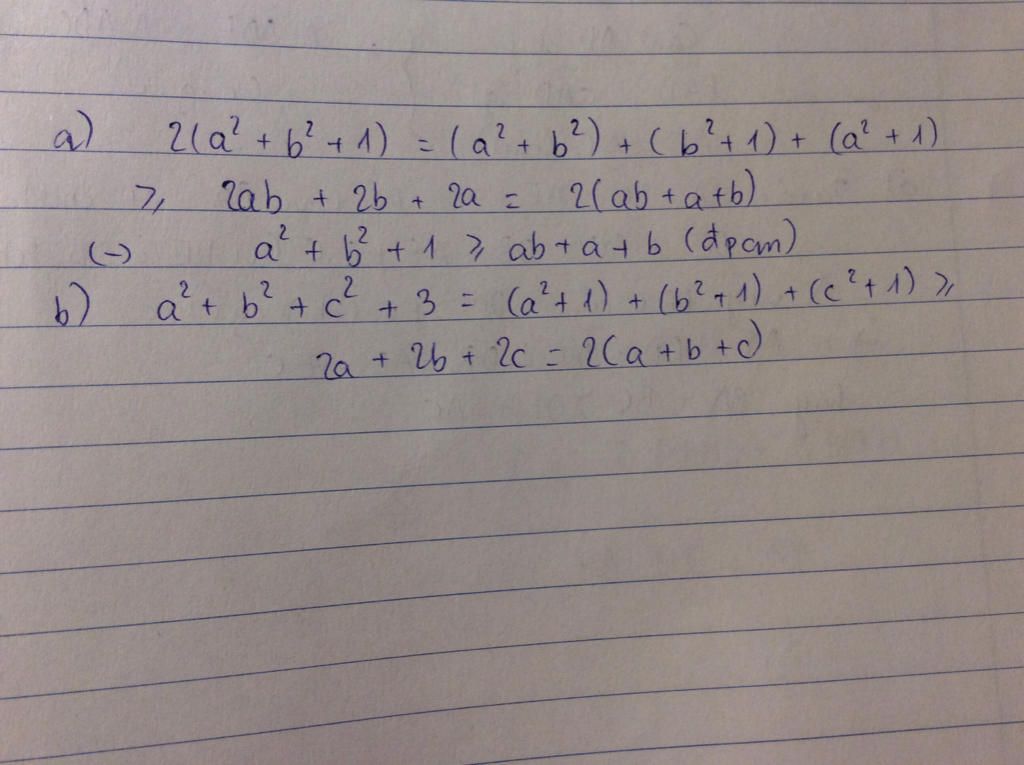 a) 2(a² + b² + 1) = (a² + b²) + (b² + 1) + (a² + 1)
≥ 2ab + 2b + 2a = 2(ab + a + b)
(-) a² + b² + 1 ≥ ab + a + b (đpcm)
b) a² + b² + c² + 3 = (a² + 1) + (b² + 1) + (c² + 1) ≥
2a + 2b + 2c = 2(a + b + c)